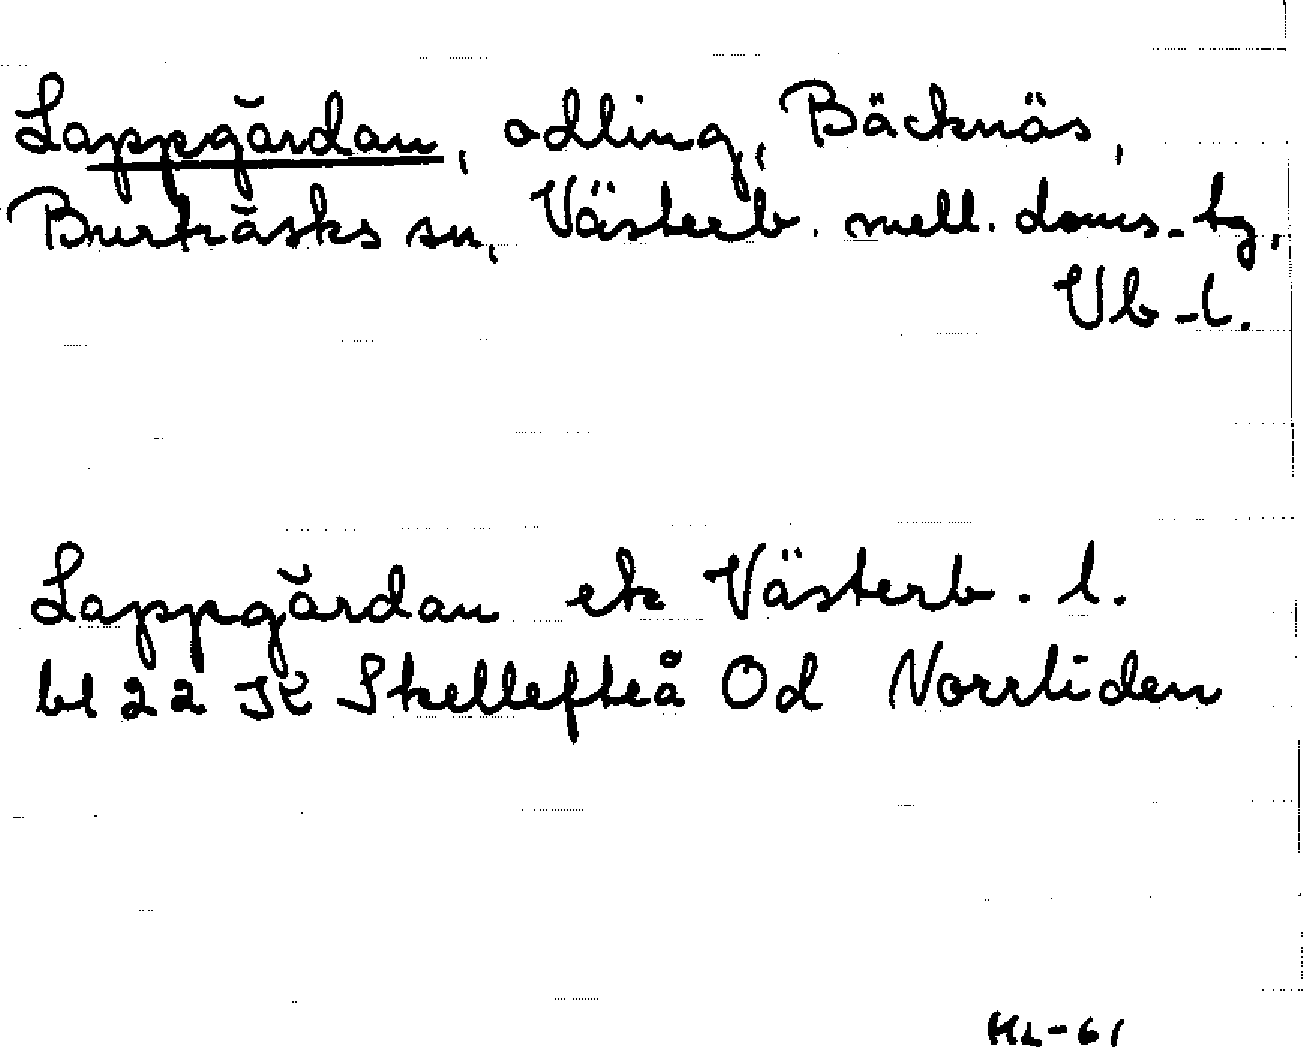 Lappgärdan, odling, Bäcknäs,
Burträsks sn, Västerb. mell. doms. tg,
Vb-l.
Lappgärdan ek Västerb. l.
bl 22 JK Skellefteå Od Norrliden
HL-61